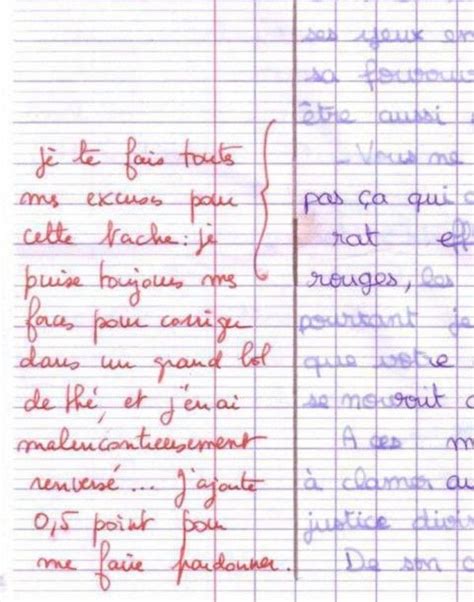 je te fais toutes
mes excuses pour
cette tache : je
puise toujours mes
forces pour corriger
dans un grand bol
de thé, et j'en ai
malencontreusement
renversé... J'ajoute
0,5 point pour
me faire pardonner.
ses yeux en
sa
être aussi
- Vous me
pas ça qui
rat eff
rouges, les
pourtant je
que votre
se nourrit
A ces m
à clamer au
justice divi
De son c